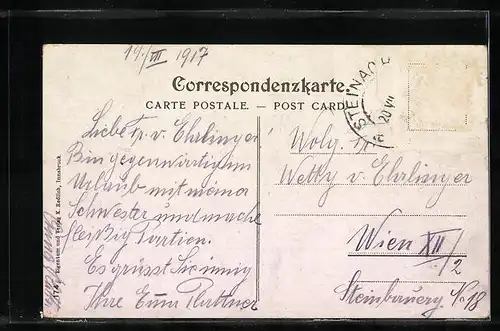 19./III 1917
Correspondenzkarte.
CARTE POSTALE. — POST CARD
STEINACH
20 VII
Liebe Fr. v. Ehrlinger!
Bin gegenwärtig im
Urlaub mit meiner
Schwester und mache
fleißig Partien.
Es grüsst Sie innig
Ihre Emma Plattner
Wolg.
Wetty v. Ehrlinger
Wien XII/2
Steinbauerg.
18
Eigentum und Verlag K. Redlich, Innsbruck.